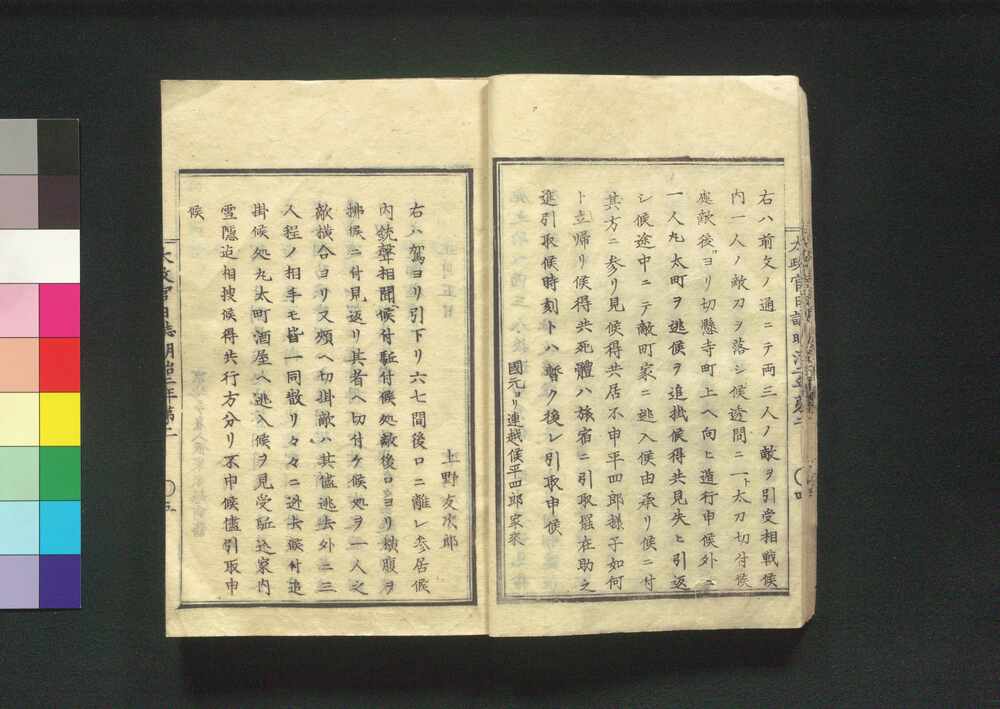 右ハ前文ノ通ニテ両三人ノ敵ヲ引受相戰候
内一人ノ敵刀ヲ落シ候透間ニ一ト太刀切付候
處敵後ヨリ切懸寺町上ヘ向ヒ迯行申候外ニ
一人丸太町ヲ逃候ヲ追掛候得共見失ヒ引返
シ候途中ニテ敵町家ニ逃入候由承リ候ニ付
其方ニ参リ見候得共居不申平四郎様子如何
ト立帰リ候得共死體ハ旅宿ニ引取罷在助之
進引取候時刻トハ暫ク後レ引取申候
國元ヨリ連越候平四郎家来
上野友次郎
右ハ駕ヨリ引下リ六七間後ロニ離レ参居候
内銃聲相聞候付駈付候処敵後ロヨリ横腹ヲ
拂候ニ付見返リ其者ヘ切付ケ候処ヲ一人之
敵横合ヨリ又頬ヘ切掛敵ハ其儘逃去外ニ三
人程ノ相手モ皆一同散リ々々ニ迯去候付追
掛候処丸太町酒屋ヘ逃入候ヲ見受駈込家内
雪隠迄相捜候得共行方分リ不申候儘引取申
候
太政官日誌明治二年第二